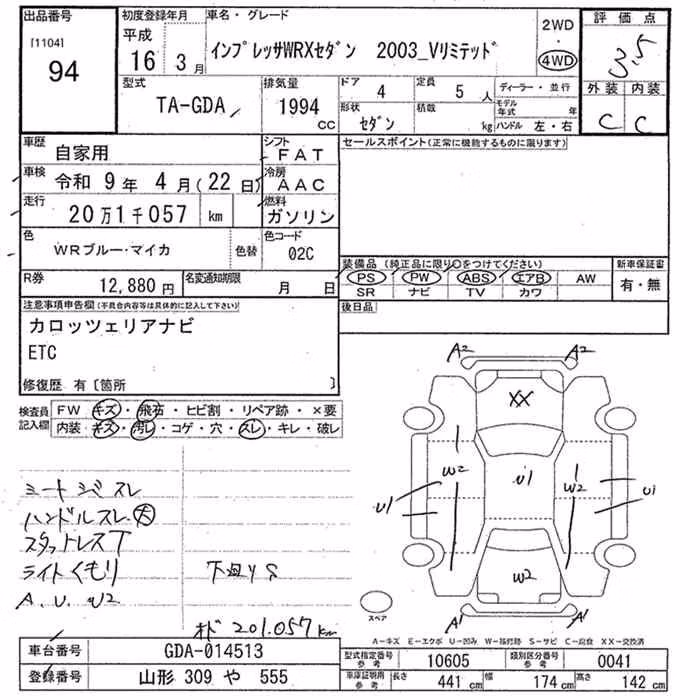 出品番号
[1104]
94
初度登録年月
平成
16年 3月
車名・グレード
インプレッサWRXセダン 2003_Vリミテッド
2WD
・
4WD
評価点
3.5
外装 内装
C C
型式
TA-GDA
排気量
1994
CC
ドア 4
定員 5人
ディーラー・並行
形状 セダン
積載 kg
モデル年式 年
ハンドル 左・右
車歴 自家用
シフト FAT
セールスポイント(正常に機能するものに限ります)
車検 令和 9年 4月(22日)
冷房 AAC
走行 20万1千057 km
燃料 ガソリン
色 WRブルー・マイカ
色替
色コード 02C
装備品(純正品に限り○をつけてください)
新車保証書
PS PW ABS エアB AW
SR ナビ TV カワ
有・無
R券 12,880円
名変通知期限 月 日
後日品
注意事項申告欄(不具合内容等は具体的に記入して下さい)
カロッツェリアナビ
ETC
修復歴 有〔箇所 〕
検査員記入欄
FW キズ・飛石・ヒビ割・リペア跡・×要
内装 キズ・汚レ・コゲ・穴・スレ・キレ・破レ
A2 A2
XX
W2 U1 W2
U1 U1
W2
A1 A1
スペア
シートシミスレ
ハンドルスレ大
スタットレスT
ライトくもり
下廻りS
A.U.W2
オド 201.057km
A-キズ E-エクボ U-凹み W-補修跡 S-サビ C-腐食 XX-交換済
車台番号 GDA-014513
登録番号 山形 309 や 555
型式指定番号参考 10605
類別区分番号参考 0041
車庫証明用参考 長さ 441 cm 幅 174 cm 高さ 142 cm